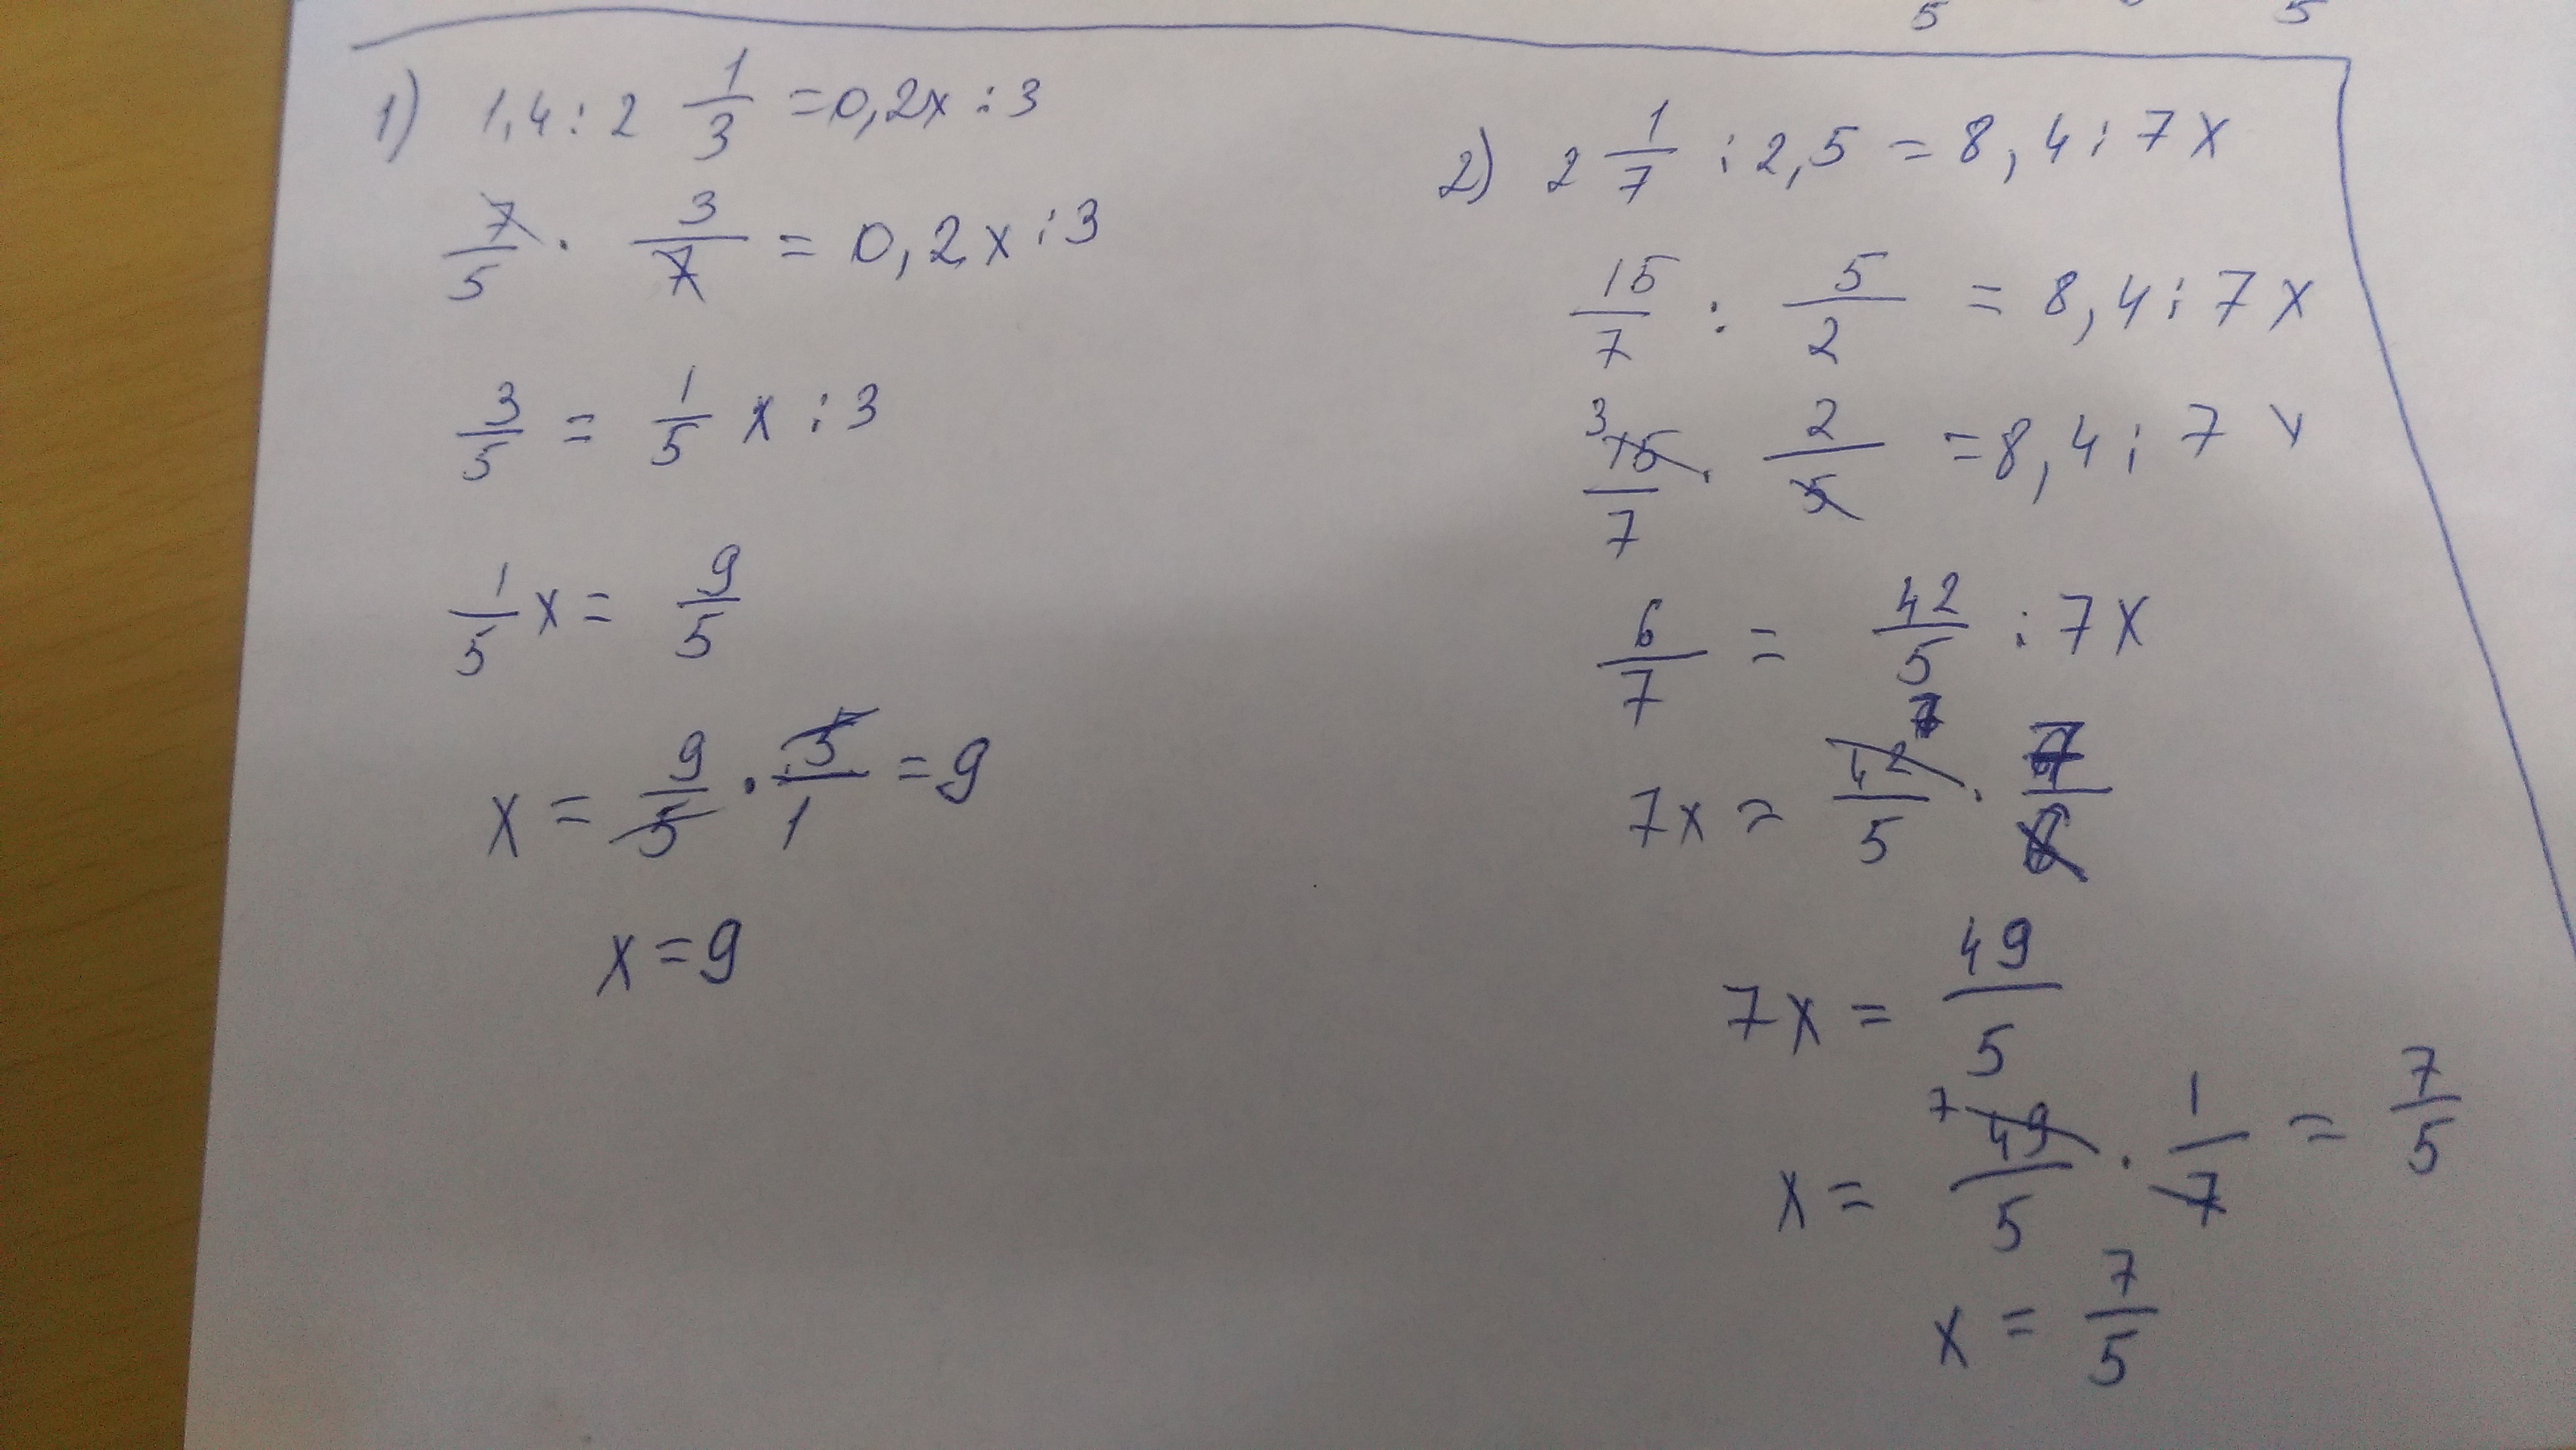 5 5
1) 1,4 : 2 1/3 = 0,2x : 3
7/5 · 3/7 = 0,2x : 3
3/5 = 1/5 x : 3
1/5 x = 9/5
x = 9/5 · 5/1 = 9
x = 9
2) 2 1/7 : 2,5 = 8,4 : 7x
15/7 : 5/2 = 8,4 : 7x
3 15/7 · 2/5 = 8,4 : 7x
6/7 = 42/5 : 7x
7x = 42 7/5 · 7/6
7x = 49/5
x = 7 49/5 · 1/7 = 7/5
x = 7/5